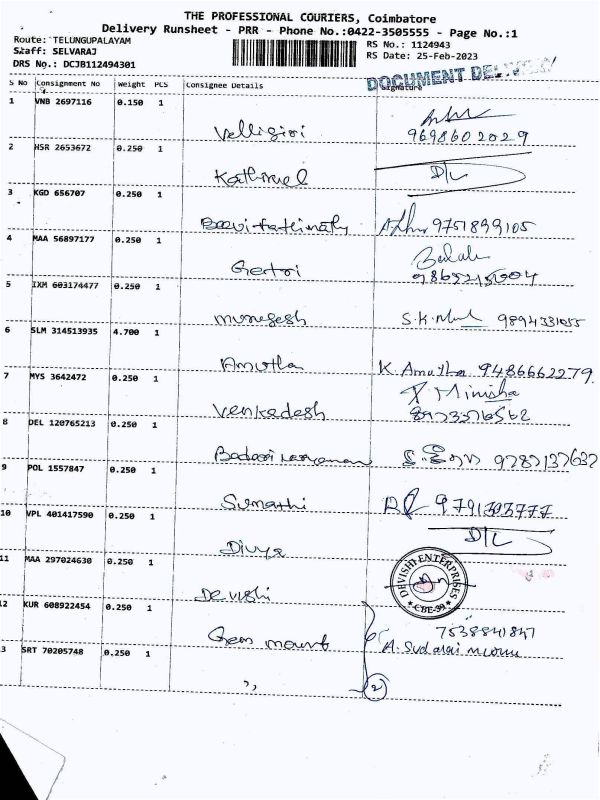 THE PROFESSIONAL COURIERS, Coimbatore
Delivery Runsheet - PRR - Phone No.:0422-3505555 - Page No.:1
Route: TELUNGUPALAYAM
Staff: SELVARAJ
DRS No.: DCJB112494301
RS No.: 1124943
RS Date: 25-Feb-2023
S No Consignment No Weight PCS Consignee Details Signature
DOCUMENT DELIVERY
1 VNB 2697116 0.150 1
Velligiri 9698602029
2 HSR 2653672 0.250 1
Kathirvel D/L
3 KGD 656707 0.250 1
9751899105
4 MAA 56897177 0.250 1
Balah
5 IXM 603174477 0.250 1
Murugesh S.K. 9894331055
6 SLM 314513935 4.700 1
Amutha K. Amutha 9486662279
7 MYS 3642472 0.250 1
Minisha
Venkadesh
8 DEL 120765213 0.250 1
9787137637
9 POL 1557847 0.250 1
Sumathi
10 VPL 401417590 0.250 1
Divya D/L
11 MAA 297024630 0.250 1
Devishi
DEVISHI ENTERPRISES
* CBE-39 *
12 KUR 608922454 0.250 1
Gem mount 7538841847
3 SRT 70205748 0.250 1
A.
,, 2